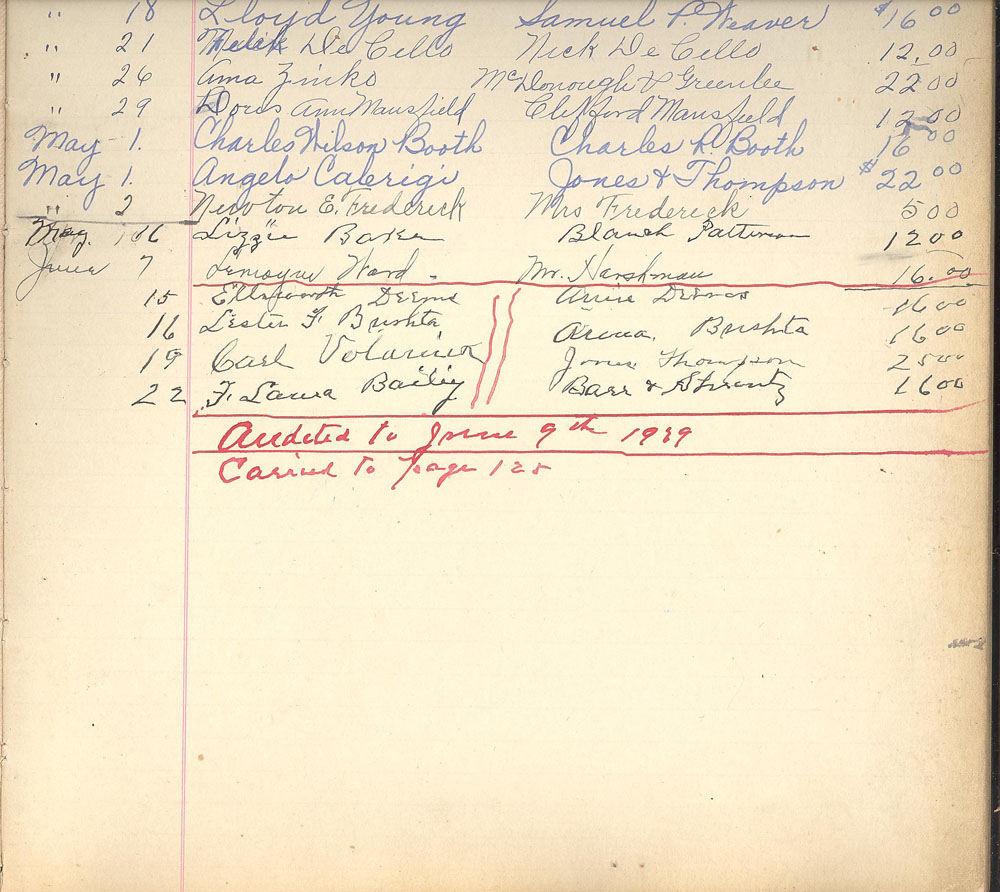 " 18 Lloyd Young Samuel P. Weaver $16 00
" 21 De Cello Nick De Cello 12.00
" 26 Anna Zinko McDonough & Greenlee 22 00
" 29 Doris Ann Mansfield Clifford Mansfield 12 00
May 1. Charles Wilson Booth Charles R. Booth 16 00
May 1. Angelo Calerigi Jones & Thompson $22 00
" 2 Newton E. Frederick Mrs Frederick 5 00
May. 16 Lizzie Baker Blanch Patterson 12 00
June 7 Lemoyne Ward. Mr. Harshman 16.00
15 Ellsworth Deems Annie Deems 16 00
16 Lester F. Brishta Brishta 16 00
19 Carl Jones Thompson 25 00
22 F. Laura Bailey Barr & 16 00
Audeted to June 9th 1939
Carried to Page 125